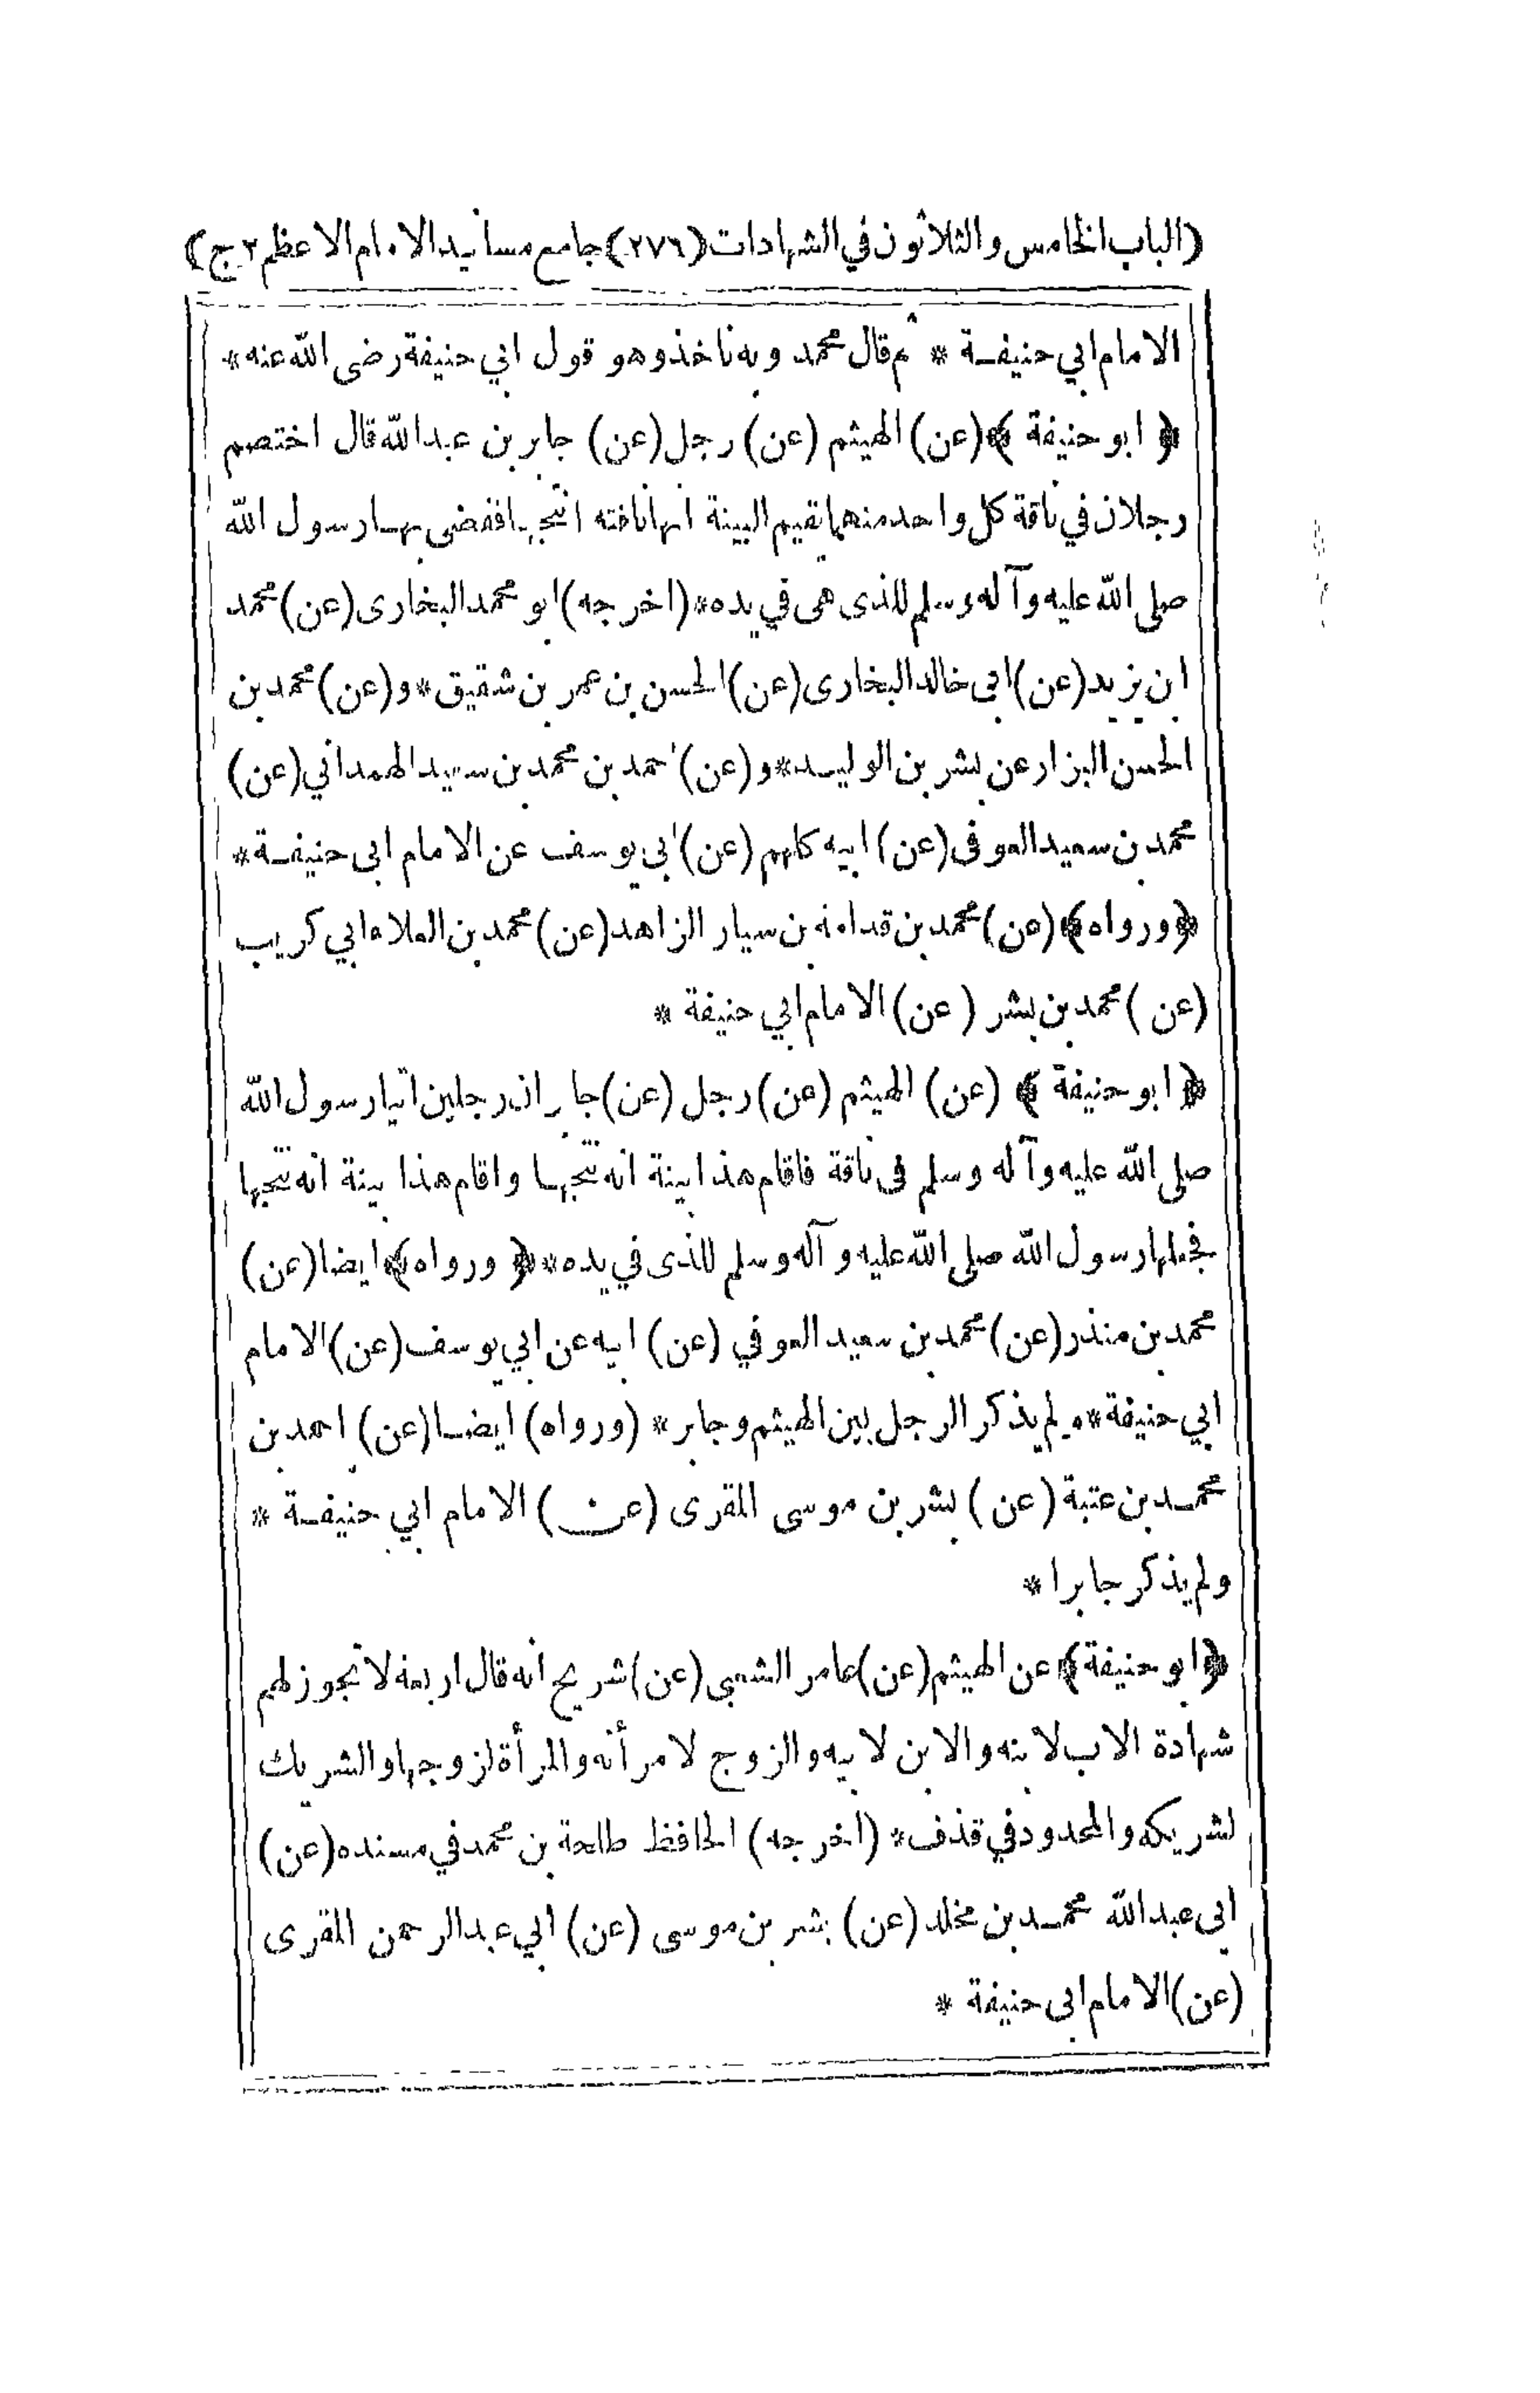 (الباب الخامس والثلاثون في الشهادات (٢٧٦) جامع مسانيد الامام الاعظم ٢ ج)
الامام ابي حنيفة * ثم قال محمد وبه ناخذ وهو قول ابي حنيفة رضى الله عنه *
﴿ ابو حنيفة ﴾ (عن) الهيثم (عن) رجل (عن) جابر بن عبد الله قال اختصم
رجلان في ناقة كل واحد منهما يقيم البينة انها ناقته انتجها فقضى بها رسول الله
صلى الله عليه وآله وسلم للذى هى في يده * (اخرجه) ابو محمد البخارى (عن) محمد
ابن يزيد (عن) ابى خالد البخارى (عن) الحسن بن عمر بن شقيق * و (عن) محمد بن
الحسن البزار عن بشر بن الوليد * و (عن) احمد بن محمد بن سعيد الهمداني (عن)
محمد بن سعيد العوفى (عن) ابيه كلهم (عن) ابي يوسف عن الامام ابى حنيفة *
﴿ ورواه ﴾ (عن) محمد بن قدامة بن سيار الزاهد (عن) محمد بن العلاء ابي كريب
(عن) محمد بن بشر (عن) الامام ابي حنيفة *
﴿ ابو حنيفة ﴾ (عن) الهيثم (عن) رجل (عن) جابر ان رجلين اتيا رسول الله
صلى الله عليه وآله وسلم فى ناقة فاقام هذا بينة انه نتجها واقام هذا بينة انه نتجها
فجعلها رسول الله صلى الله عليه وآله وسلم للذى في يده * ﴿ ورواه ﴾ ايضا (عن)
محمد بن منذر (عن) محمد بن سعيد العوفي (عن) ابيه عن ابي يوسف (عن) الامام
ابي حنيفة * ولم يذكر الرجل بين الهيثم وجابر * (ورواه) ايضا (عن) احمد بن
محمد بن عتبة (عن) بشر بن موسى المقرى (عن) الامام ابي حنيفة *
ولم يذكر جابرا *
﴿ ابو حنيفة ﴾ عن الهيثم (عن) عامر الشعبى (عن) شريح انه قال اربعة لا تجوز لهم
شهادة الاب لابنه والابن لابيه والزوج لامرأته والمرأة لزوجها والشريك
لشريكه والمحدود في قذف * (اخرجه) الحافظ طلحة بن محمد في مسنده (عن)
ابى عبد الله محمد بن مخلد (عن) بشر بن موسى (عن) ابي عبد الرحمن المقرى
(عن) الامام ابى حنيفة *